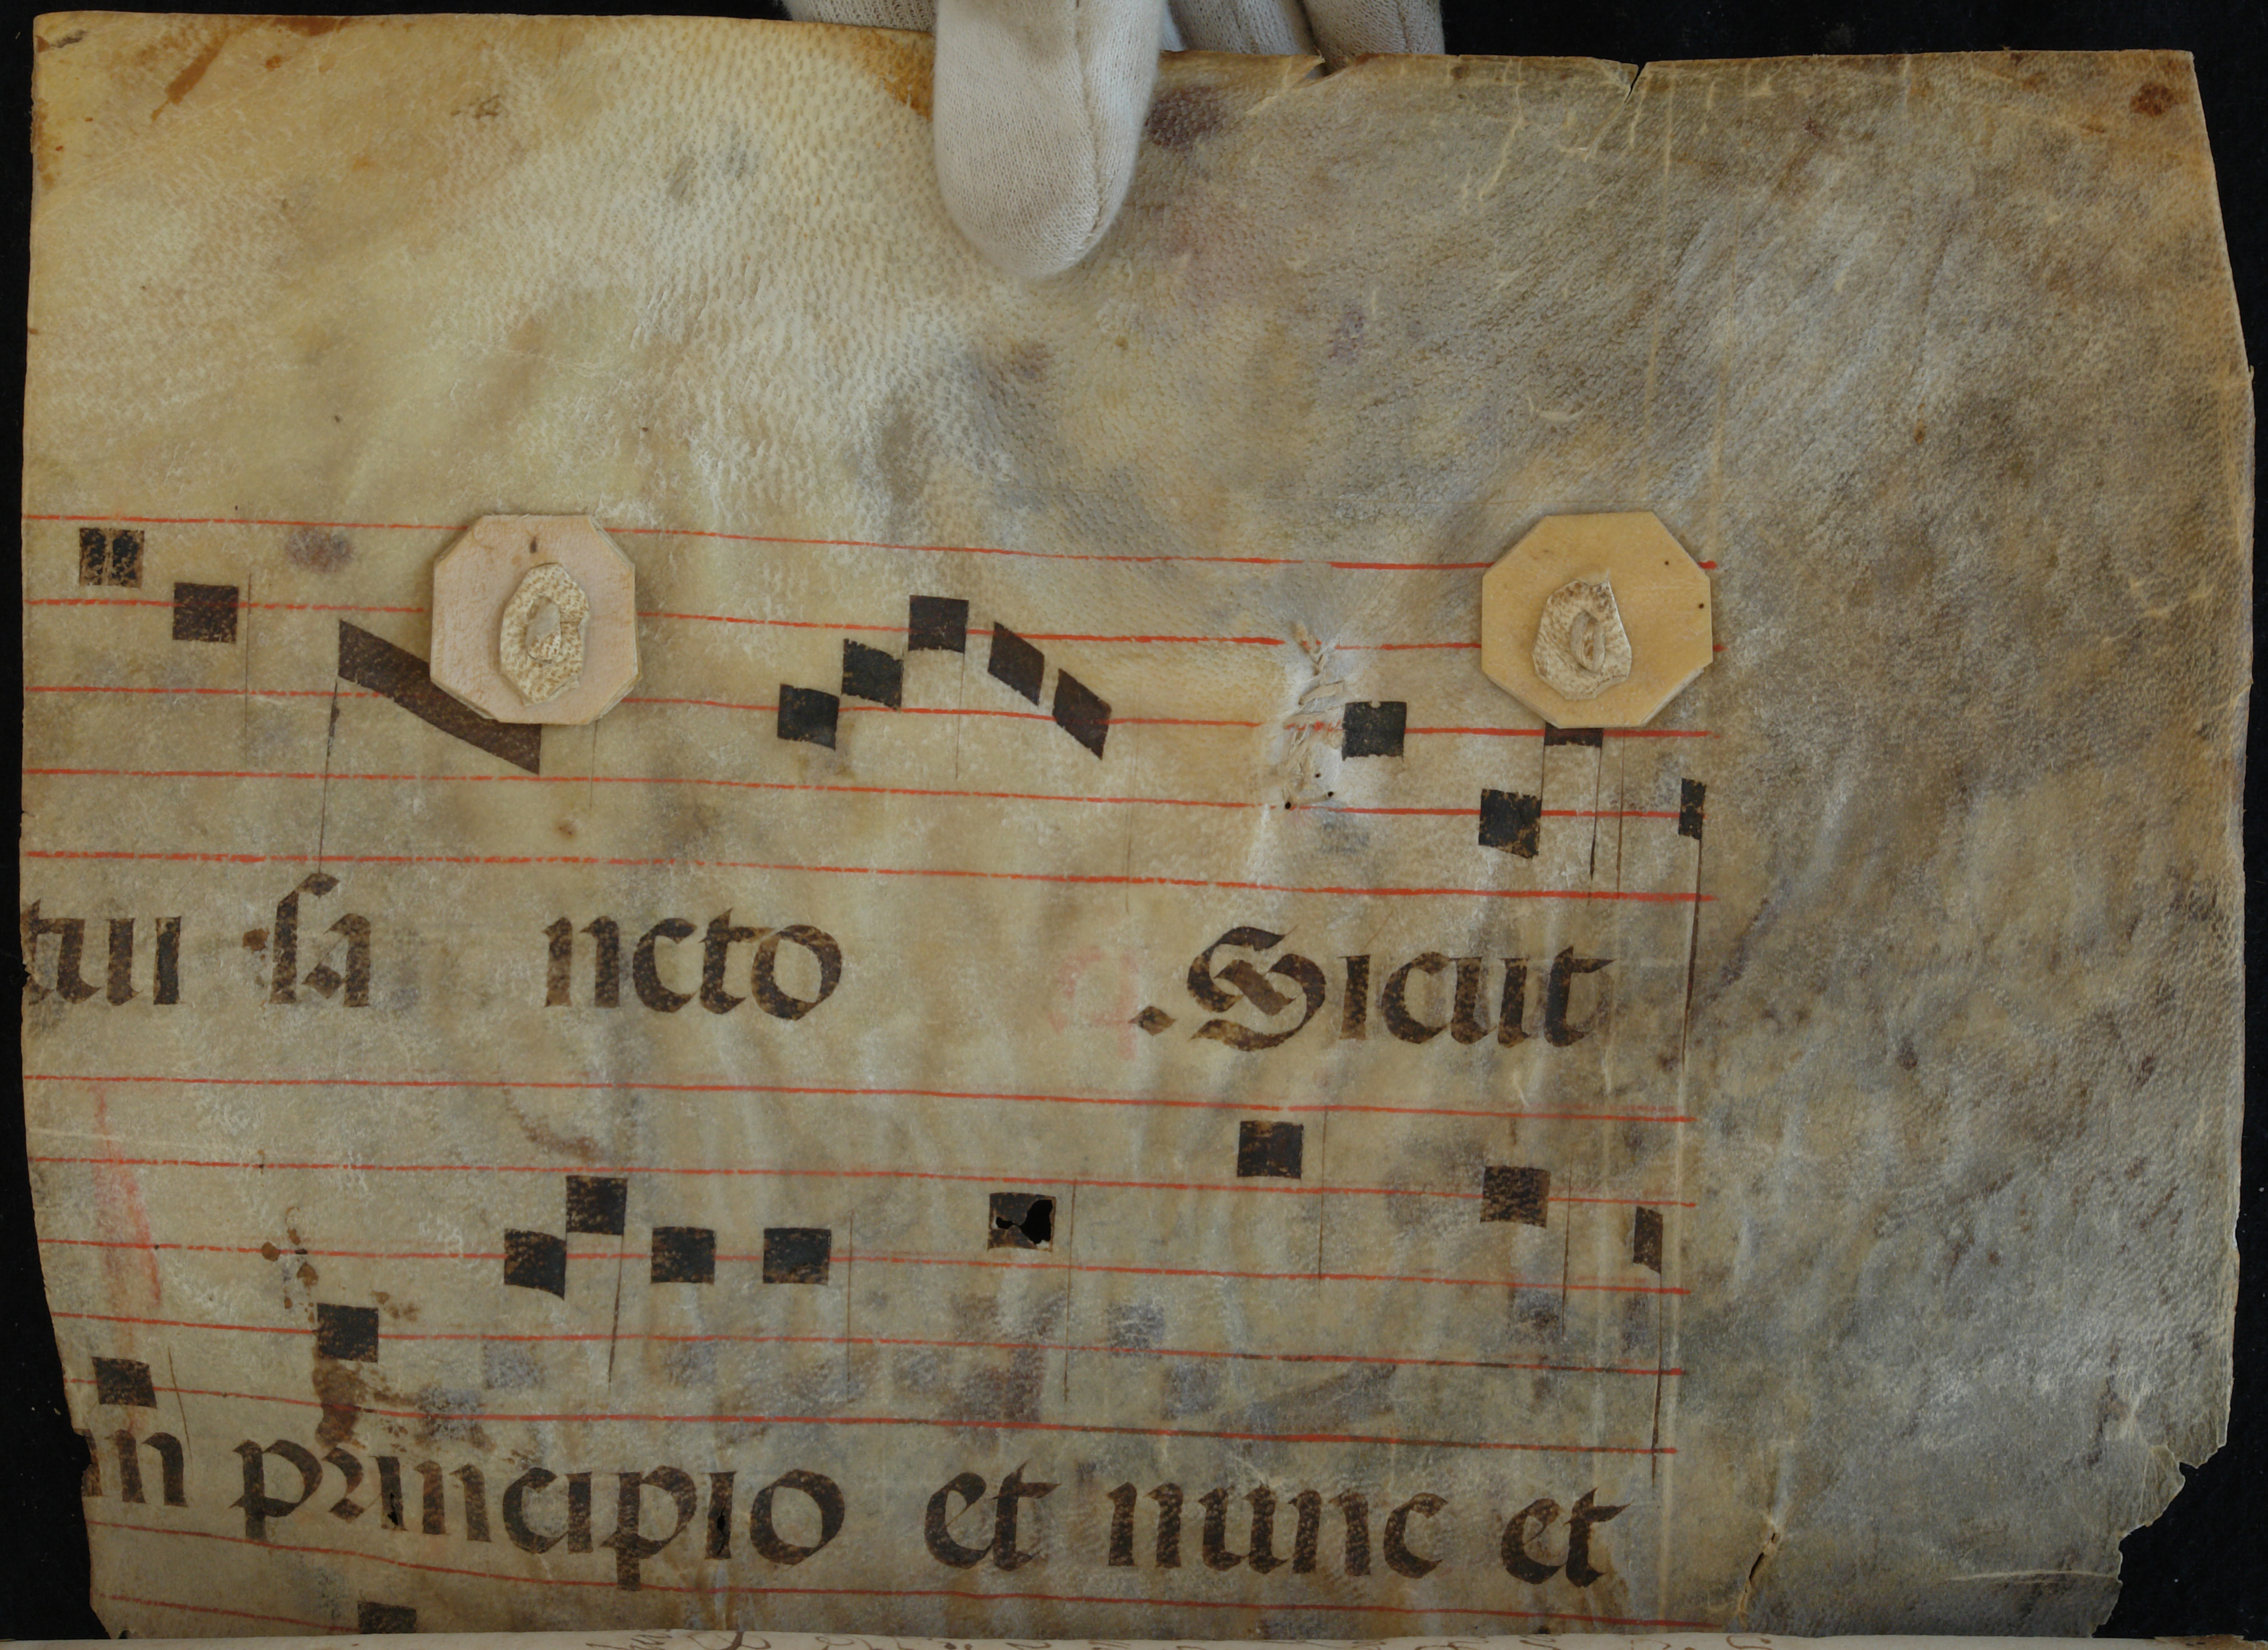 tui sa ncto . Sicut
in principio et nunc et